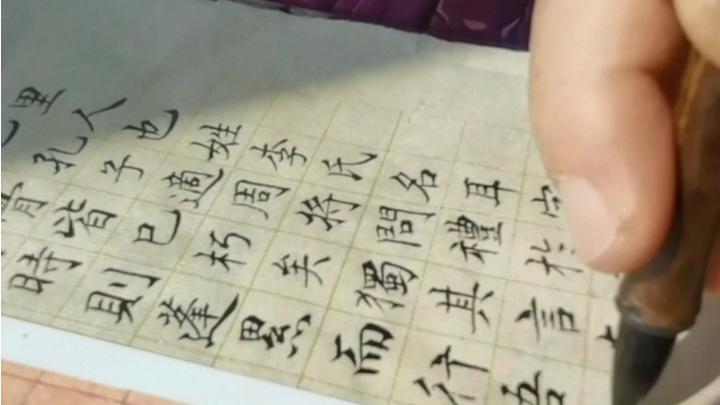 里人也姓李氏名耳字
孔子適周將問禮於
骨皆已朽矣獨其言
時則蓬累而行吾